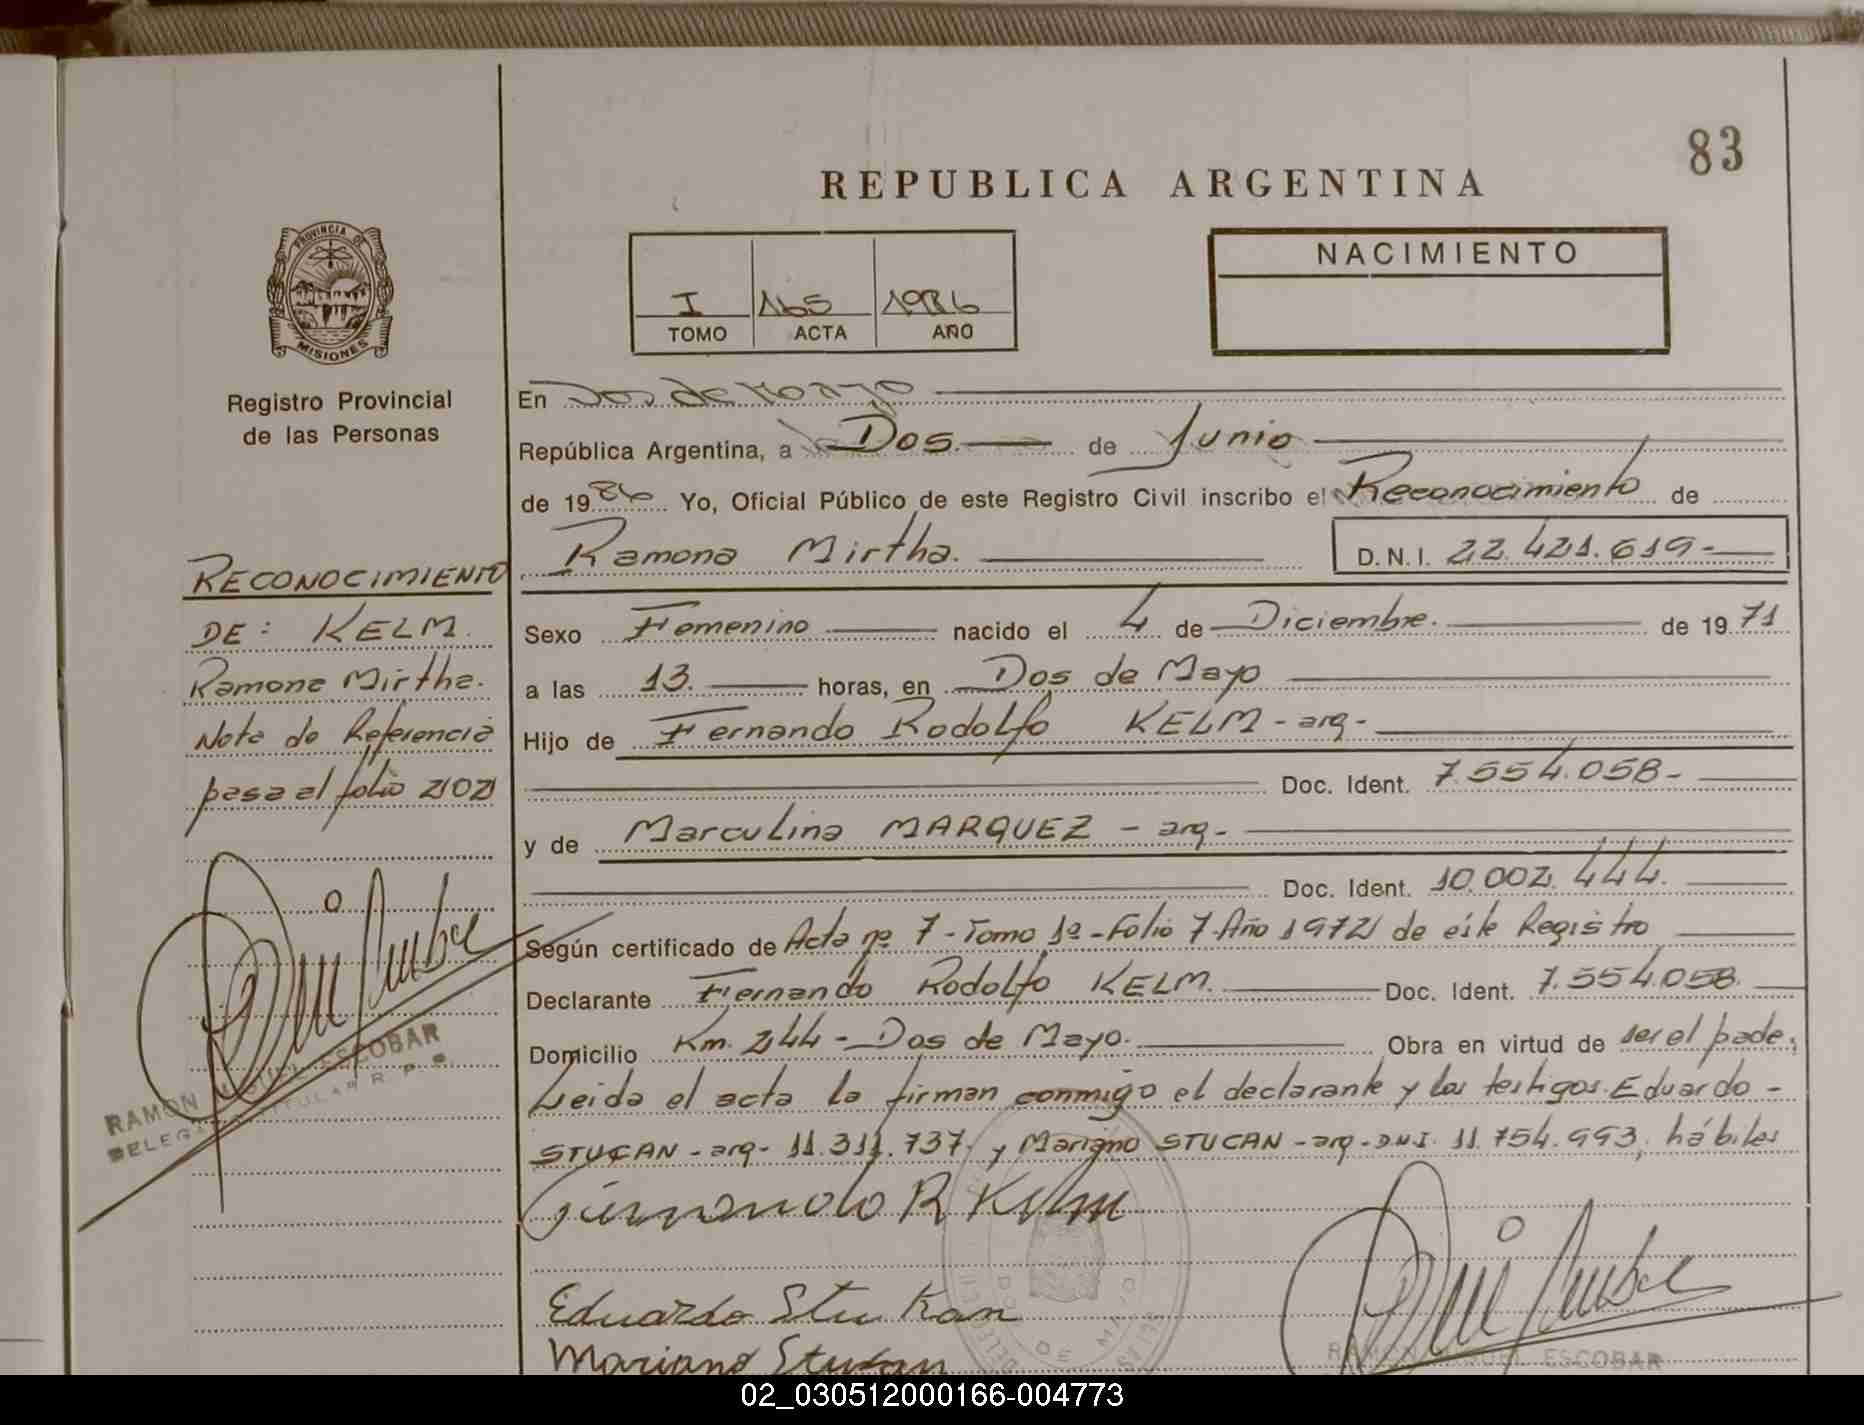 83
REPUBLICA ARGENTINA
PROVINCIA DE
MISIONES
Registro Provincial
de las Personas
I 165 1986
TOMO ACTA AÑO
NACIMIENTO
En Dos de Mayo
República Argentina, a Dos de Junio
de 1986 Yo, Oficial Público de este Registro Civil inscribo el Reconocimiento de
Ramona Mirtha. D.N.I. 22.421.619-
Sexo Femenino nacido el 4 de Diciembre. de 1971
a las 13. horas, en Dos de Mayo
Hijo de Fernando Rodolfo KELM - arg-
Doc. Ident. 7.554.058-
y de Marculina MARQUEZ - arg-
Doc. Ident. 10.002.444.
Según certificado de Acta nº 7 - Tomo 1º - Folio 7 - Año 1972 de éste Registro
Declarante Fernando Rodolfo KELM. Doc. Ident. 7.554.058.
Domicilio Km. 244 - Dos de Mayo. Obra en virtud de ser el padre.
Leida el acta la firman conmigo el declarante y los testigos. Eduardo -
STUCAN - arg- 11.311.737. y Mariano STUCAN - arg - D.N.I. 11.754.993, hábiles
RECONOCIMIENTO
DE: KELM.
Ramona Mirtha.
Nota de Referencia
pasa al folio 202
RAMON MIGUEL ESCOBAR
Fernando R Kelm
Eduardo Stukan
Mariano Stukan
DOS DE MAYO
RAMON MIGUEL ESCOBAR
02_030512000166-004773